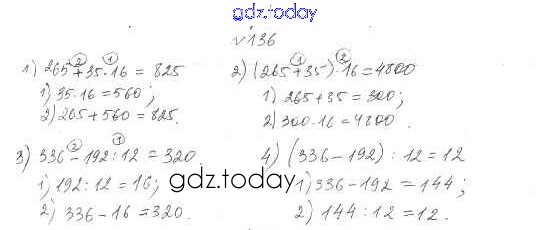 gdz.today
№136
1) 265 + 35 · 16 = 825
1) 35 · 16 = 560;
2) 265 + 560 = 825.
2) (265 + 35) · 16 = 4800
1) 265 + 35 = 300;
2) 300 · 16 = 4800.
3) 336 - 192 : 12 = 320
1) 192 : 12 = 16;
2) 336 - 16 = 320.
gdz.today
4) (336 - 192) : 12 = 12
1) 336 - 192 = 144;
2) 144 : 12 = 12.